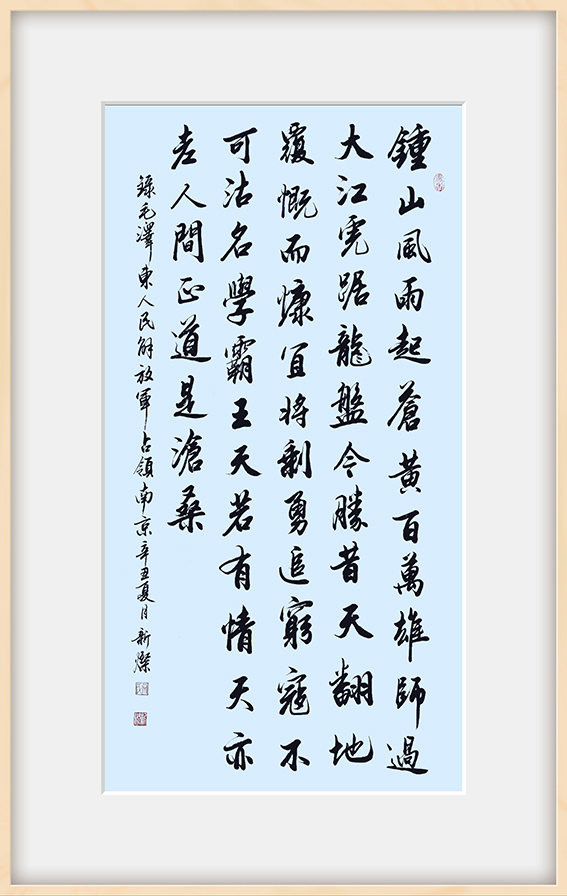 鍾山風雨起蒼黃百萬雄師過
大江虎踞龍盤今勝昔天翻地
覆慨而慷宜将剩勇追窮寇不
可沽名學霸王天若有情天亦
老人間正道是滄桑
錄毛澤東人民解放軍占領南京辛丑夏月新燦